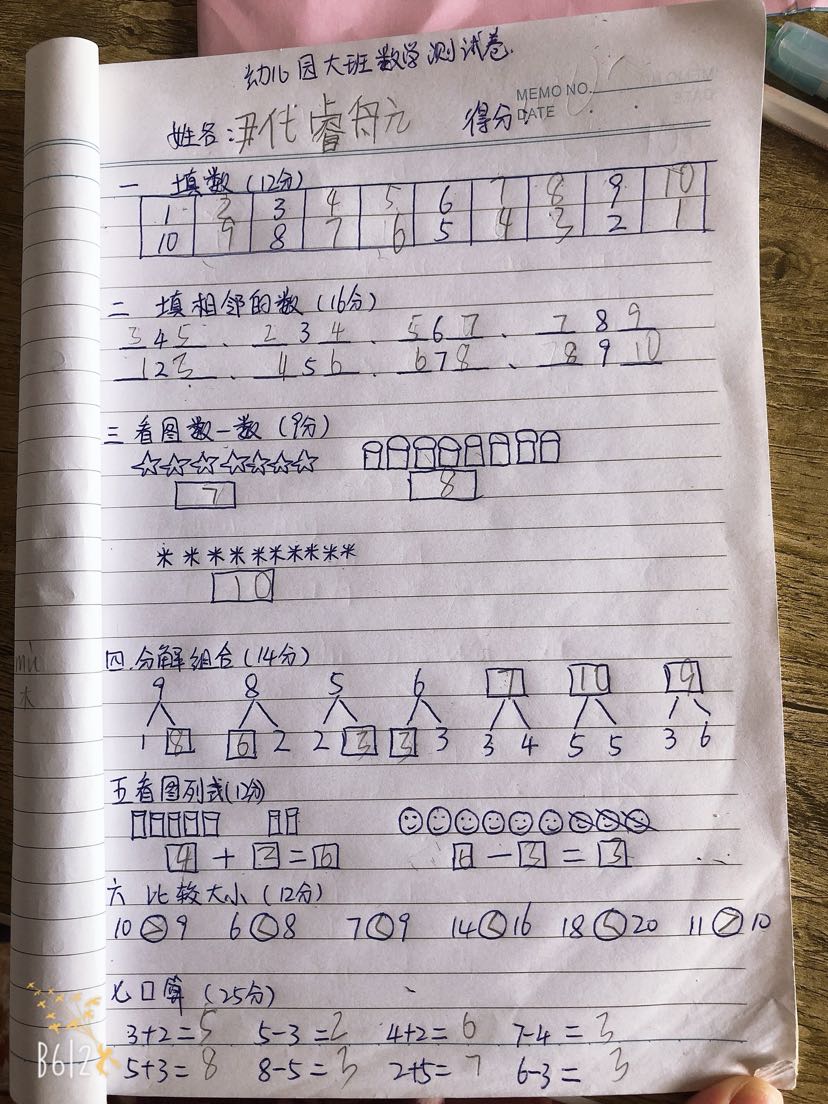 幼儿园大班数学测试卷.
MEMO NO.
DATE
姓名: 代睿 得分:
一 填数(12分)
1 2 3 4 5 6 7 8 9 10
10 9 8 7 6 5 4 3 2 1
二 填相邻的数(16分)
3 4 5 、 2 3 4 、 5 6 7 、 7 8 9
1 2 3 、 4 5 6 、 6 7 8 、 8 9 10
三 看图数一数(9分)
7 8
10
四.分解组合(14分)
9 8 5 6 7 10 9
1 8 6 2 2 3 3 3 3 4 5 5 3 6
五看图列式(12分)
4 + 2 = 6 6 - 3 = 3
六 比较大小(12分)
10 > 9 6 < 8 7 < 9 14 < 16 18 < 20 11 > 10
七口算(25分)
3+2=5 5-3=2 4+2=6 7-4=3
5+3=8 8-5=3 2+5=7 6-3=3
mù
木
B612